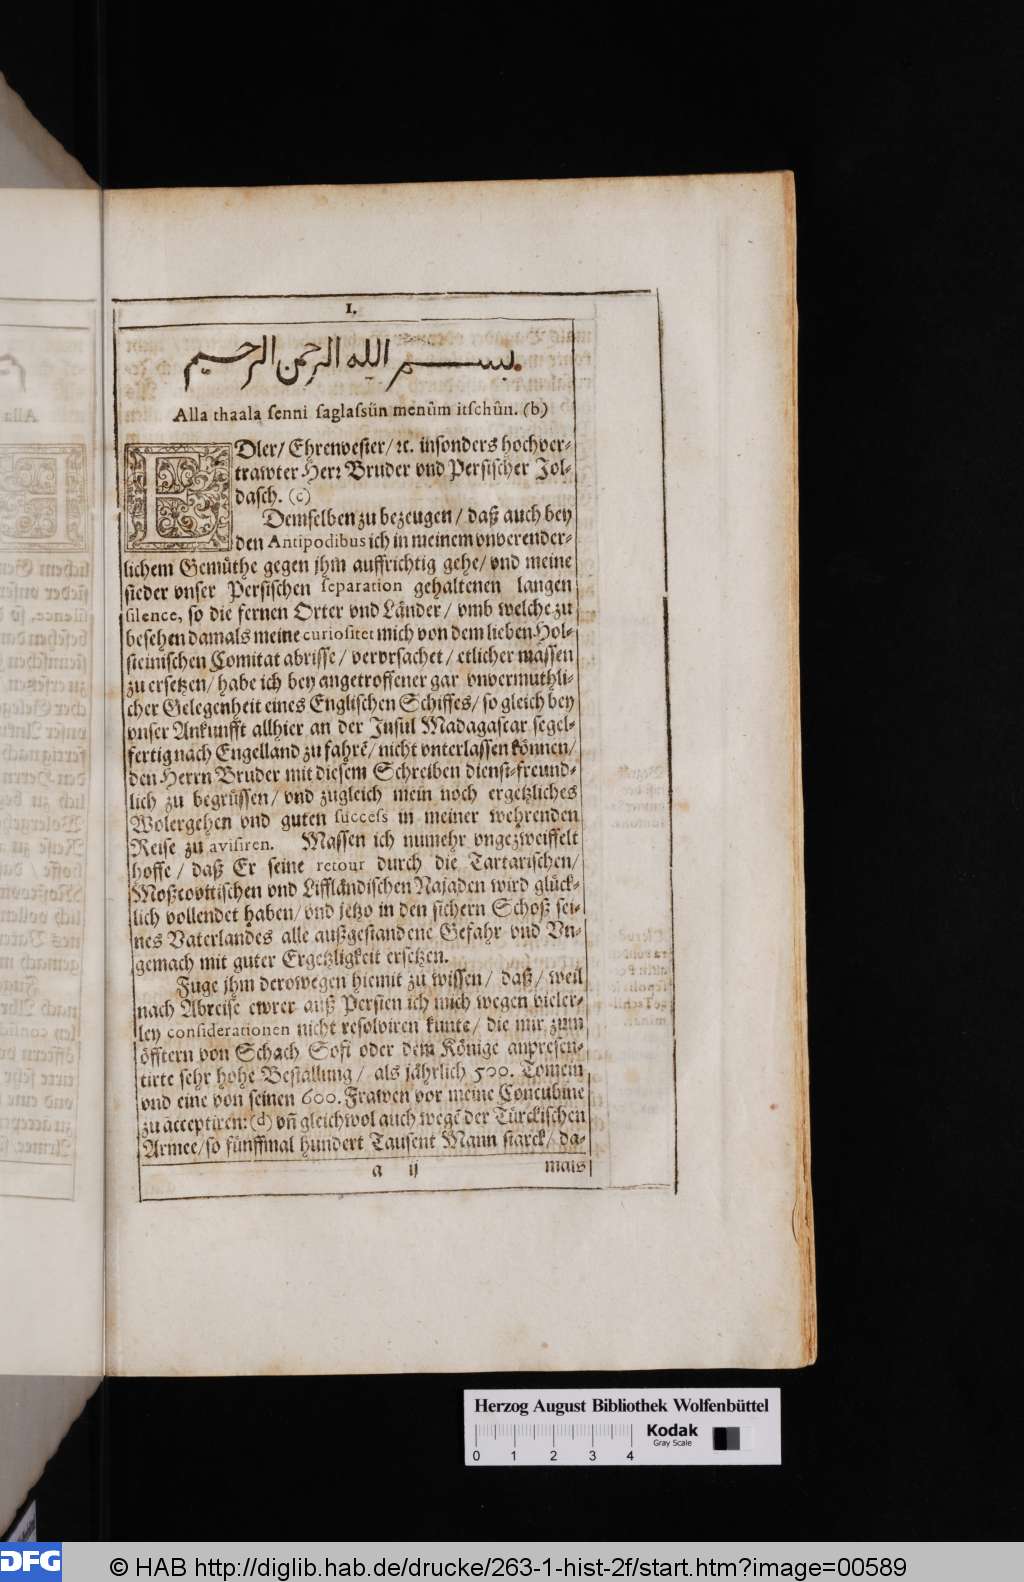 I.
بسم الله الرحمن الرحيم
Alla thaala senni saglassün menûm itschûn. (b)
EDler/ Ehrenvester/ ꝛc. insonders hochver-
trawter Herr Bruder vnd Persischer Jol-
dasch. (c)
Demselben zu bezeugen / daß auch bey
den Antipodibus ich in meinem vnverender-
lichem Gemühte gegen jhm auffrichtig gehe/ vnd meine
sieder vnser Persischen separation gehaltenen langen
silence, so die fernen Orter vnd Länder/ vmb welche zu
besehen damals meine curiositet mich von dem lieben Hol-
steinischen Comitat abrisse / vervrsachet / etlicher massen
zu ersetzen/ habe ich bey angetroffener gar vnvermuthli-
cher Gelegenheit eines Englischen Schiffes/ so gleich bey
vnser Ankunfft allhier an der Insul Madagascar segel-
fertig nach Engelland zu fahrē/ nicht vnterlassen können/
den Herrn Bruder mit diesem Schreiben dienst-freund-
lich zu begrüssen/ vnd zugleich mein noch ergetzliches
Wolergehen vnd guten success in meiner wehrenden
Reise zu avisiren. Massen ich numehr vngezweiffelt
hoffe / daß Er seine retour durch die Tartarischen/
Moßcovitischen vnd Liffländischen Najaden wird glück-
lich vollendet haben/ vnd jetzo in den sichern Schoß sei-
nes Vaterlandes alle außgestandene Gefahr vnd Vn-
gemach mit guter Ergetzligkeit ersetzen.
Fuge jhm derowegen hiemit zu wissen / daß / weil
nach Abreise ewrer auß Persien ich mich wegen vieler-
ley considerationen nicht resolviren kunte / die mir zum
öfftern von Schach Sofi oder dem Könige anpresen-
tirte sehr hohe Bestallung / als jährlich 500. Tomein
vnd eine von seinen 600. Frawen vor meine Concubine
zu acceptiren: (d) vñ gleichwol auch wegē der Türckischen
Armee/ so fünffmal hundert Tausent Mann starck/ da-
a ij mals
Herzog August Bibliothek Wolfenbüttel
Kodak
Gray Scale
0 1 2 3 4
DFG © HAB http://diglib.hab.de/drucke/263-1-hist-2f/start.htm?image=00589